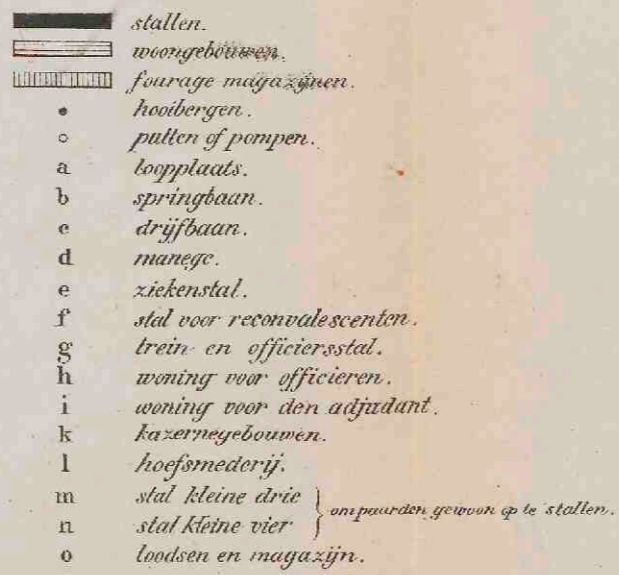 stallen.
woongebouwen.
fourage magazijnen.
hooibergen.
putten of pompen.
a loopplaats.
b springbaan.
c drijfbaan.
d manege.
e ziekenstal.
f stal voor reconvalescenten.
g trein en officiersstal.
h woning voor officieren.
i woning voor den adjudant.
k kazernegebouwen.
l hoefsmederij.
m stal kleine drie
n stal kleine vier
om paarden gewoon op te stallen.
o loodsen en magazijn.